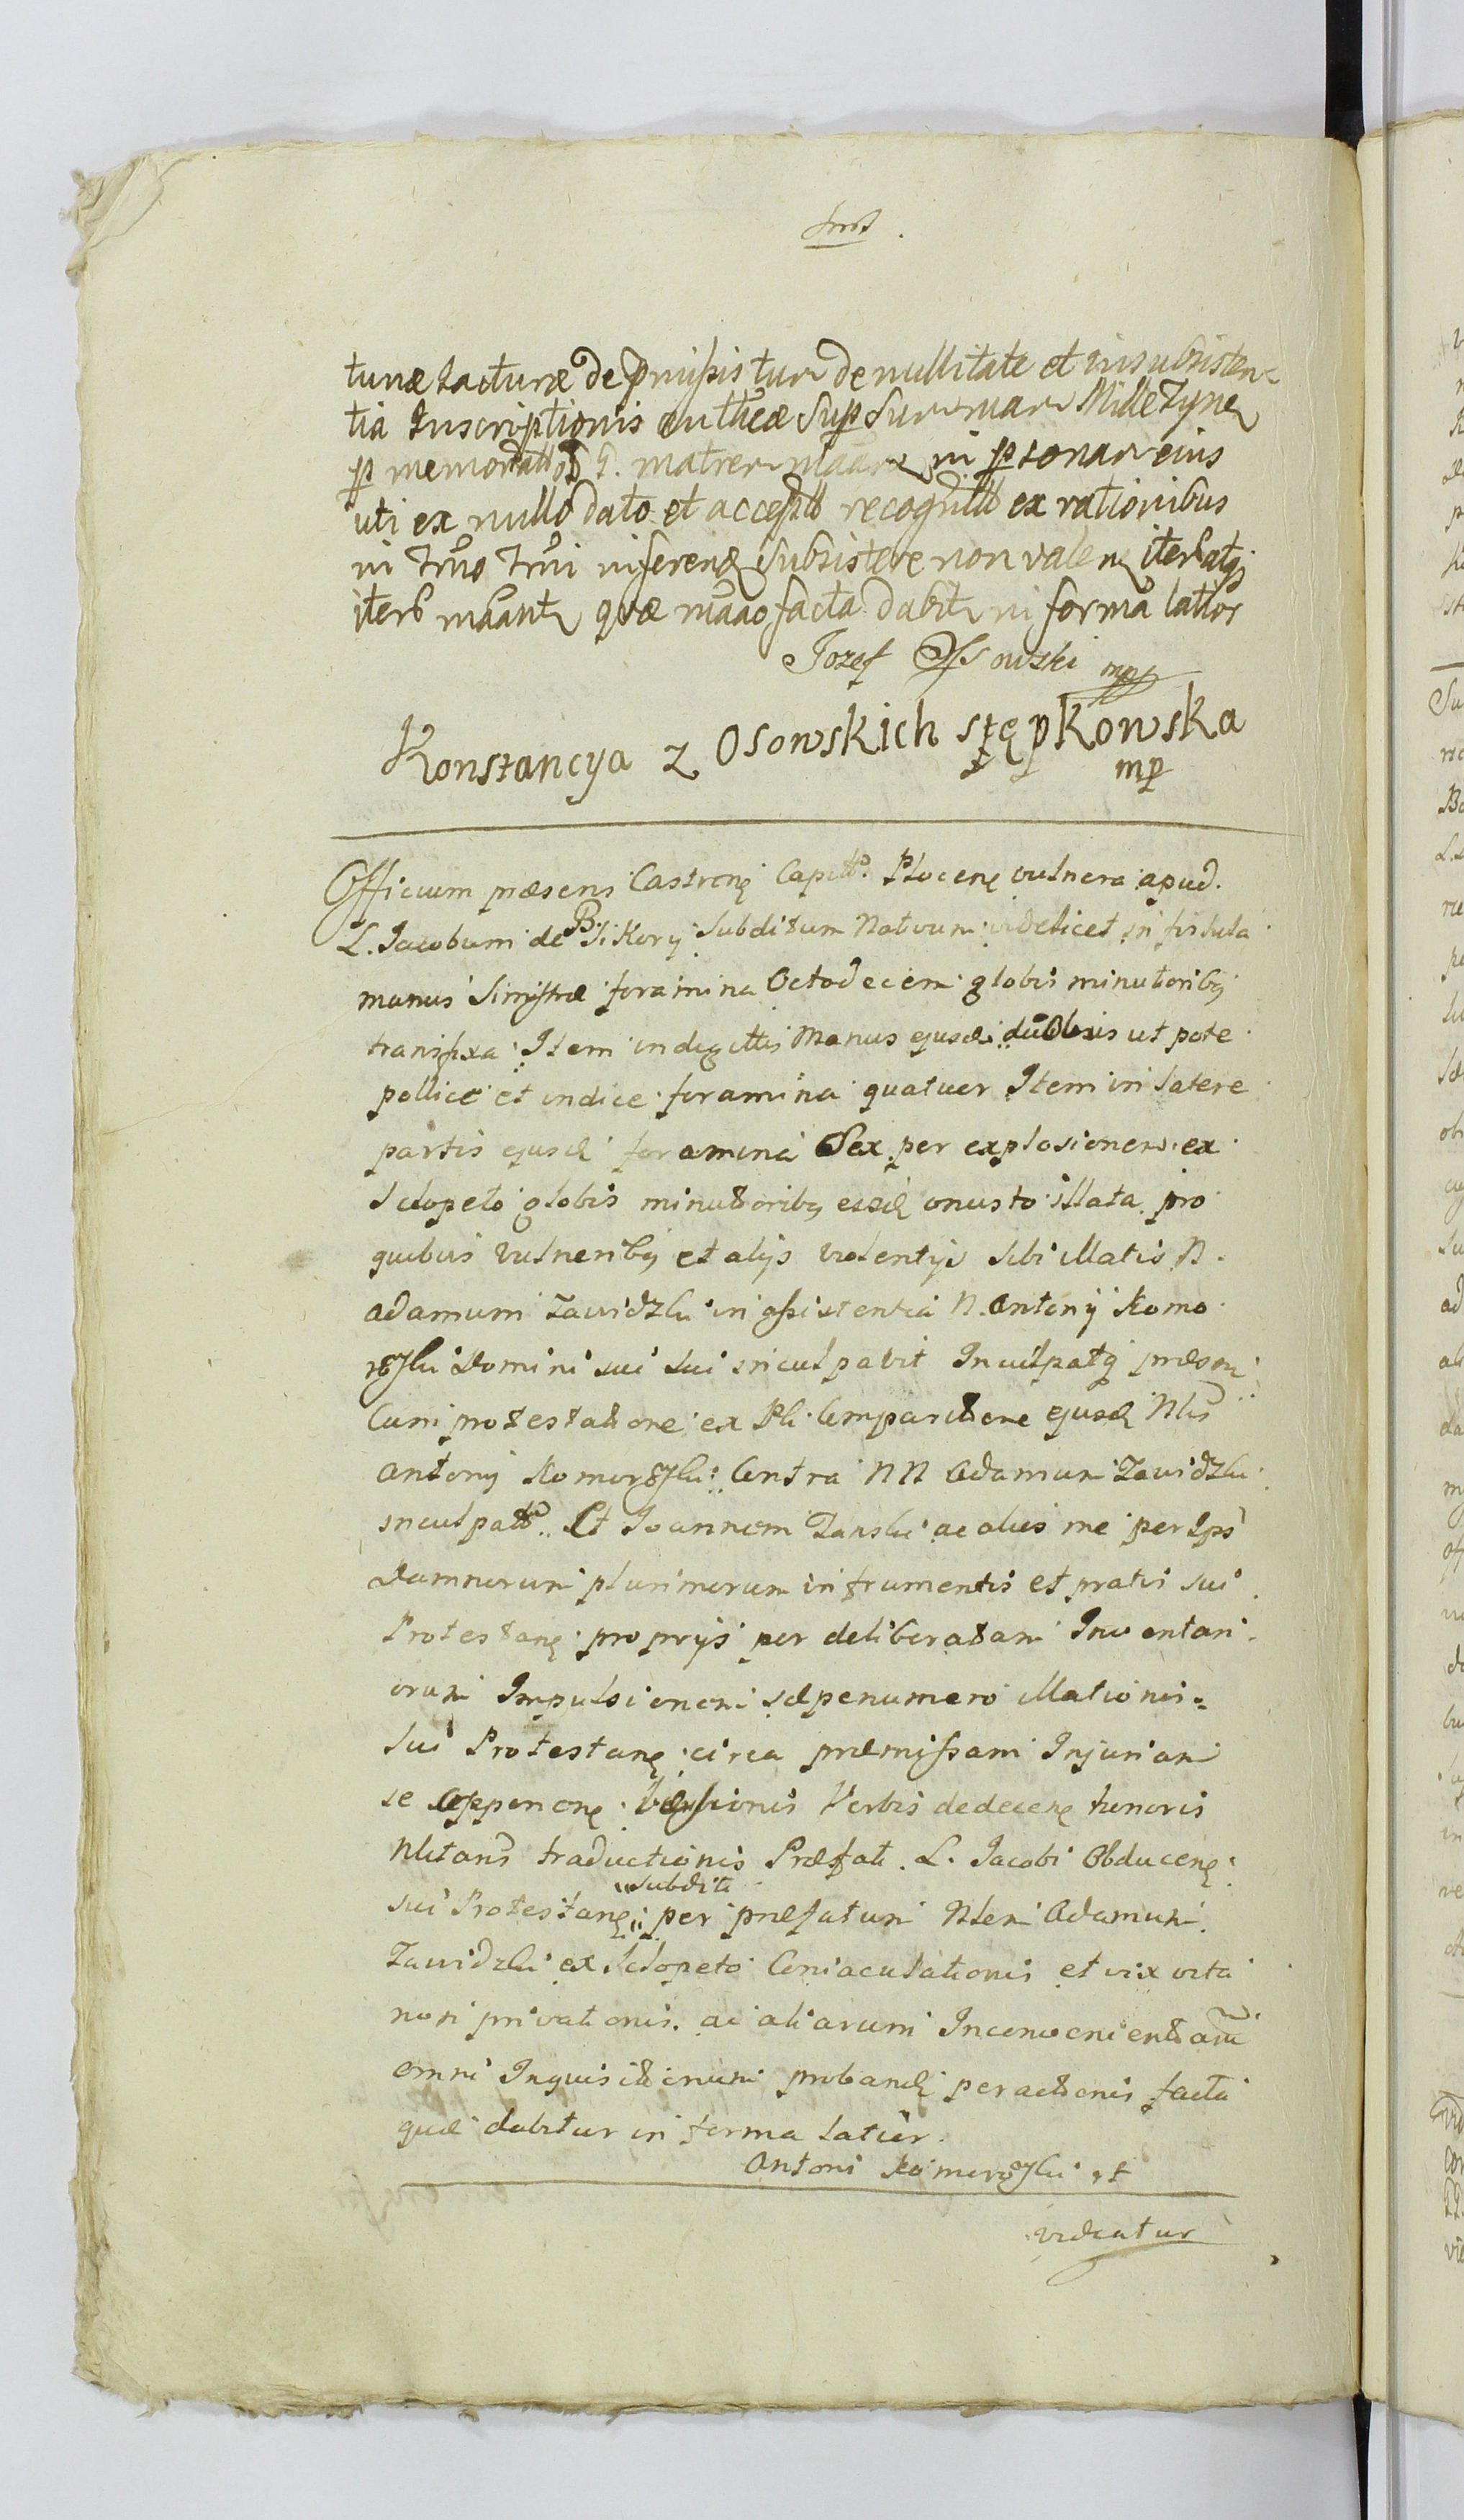 tunæ Iacturæ de præmissis tum de nullitate et insubsisten-
tia Inscriptionis authcæ Sup Summam Mille Tynf
p memorat G. matrem in psonam eius
uti ex nullo dato et accepto recognit ex rationibus
in Trno Trni inferend Subsistere non valen iteratq
iterb quæ facta dabit in forma lattior
Jozef Ossowski mp
Konstancya z Osowskich stępkowska
mp
Officium præsens Castrens Capit. Plocens vulnera apud
L. Jacobum de B. Sikory Subditum Nativum videlicet in fistula
manus Sinistræ foramina Octodecem globis minutoribq
transfixa Item in digittis Manus ejusd duobus ut pote
pollice et indice foramina quatuor Item in latere
partis ejusd foramina Sex per explosionem ex
Sclopeto globis minutioribq onusto illata pro
quibus vulneribq et alijs violentijs sibi illatis N.
Adamum Zawidzki in assistentia N. Antonij Komo
rowski Domini sui sui inculpavit Inculpatq præsen
Cum protestatione ex Pli Comparitione ejusd Nlis
Antonij Komorowski Contra NN Adamum Zawidzki
inculpatt. Et Joannem Zanski ac alios me per Ips
Damnorum plurimorum in frumentis et pratis sui
Protestans proprijs per deliberatam Inventari
orum Impulsionem sæpenumero illationis
sui Protestans circa præmissam Injuriam
se opponens Verbis dedecens honoris
Nlitaris traductionis Præfati L. Jacobi Obducens
subditi
sui Protestans per præfatum Nlem Adamum
Zawidzki ex Sclopeto Coniaculationis et vix vita
non privationis ac aliarum Inconvenientiarum
omni Inquisitionum proband peractionis facta
quæ dabitur in forma latior.
Antoni Komorowski
videatur